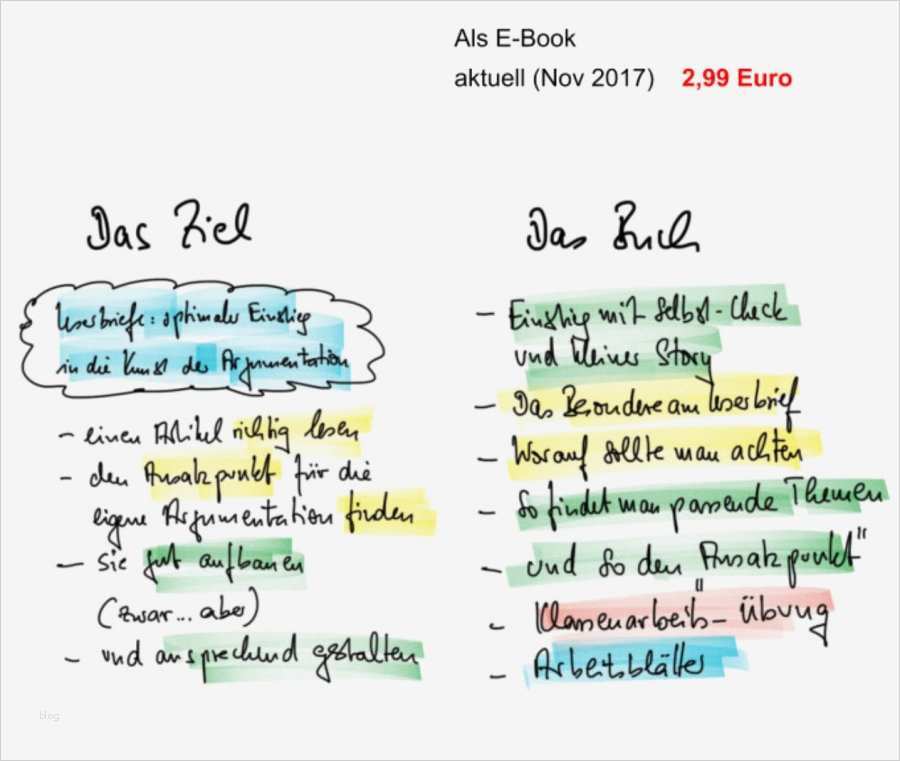 Als E-Book
aktuell (Nov 2017) 2,99 Euro
Das Ziel
Leserbriefe: optimaler Einstieg
in die Kunst der Argumentation
- einen Artikel richtig lesen
- den Ansatzpunkt für die
eigene Argumentation finden
- sie gut aufbauen
(zwar... aber)
- und ansprechend gestalten
Das Buch
- Einstieg mit Selbst-Check
und kleiner Story
- Das Besondere am Leserbrief
- Worauf sollte man achten
- So findet man passende Themen
- und so den "Ansatzpunkt"
- Klassenarbeits-Übung
- Arbeitsblätter
blog